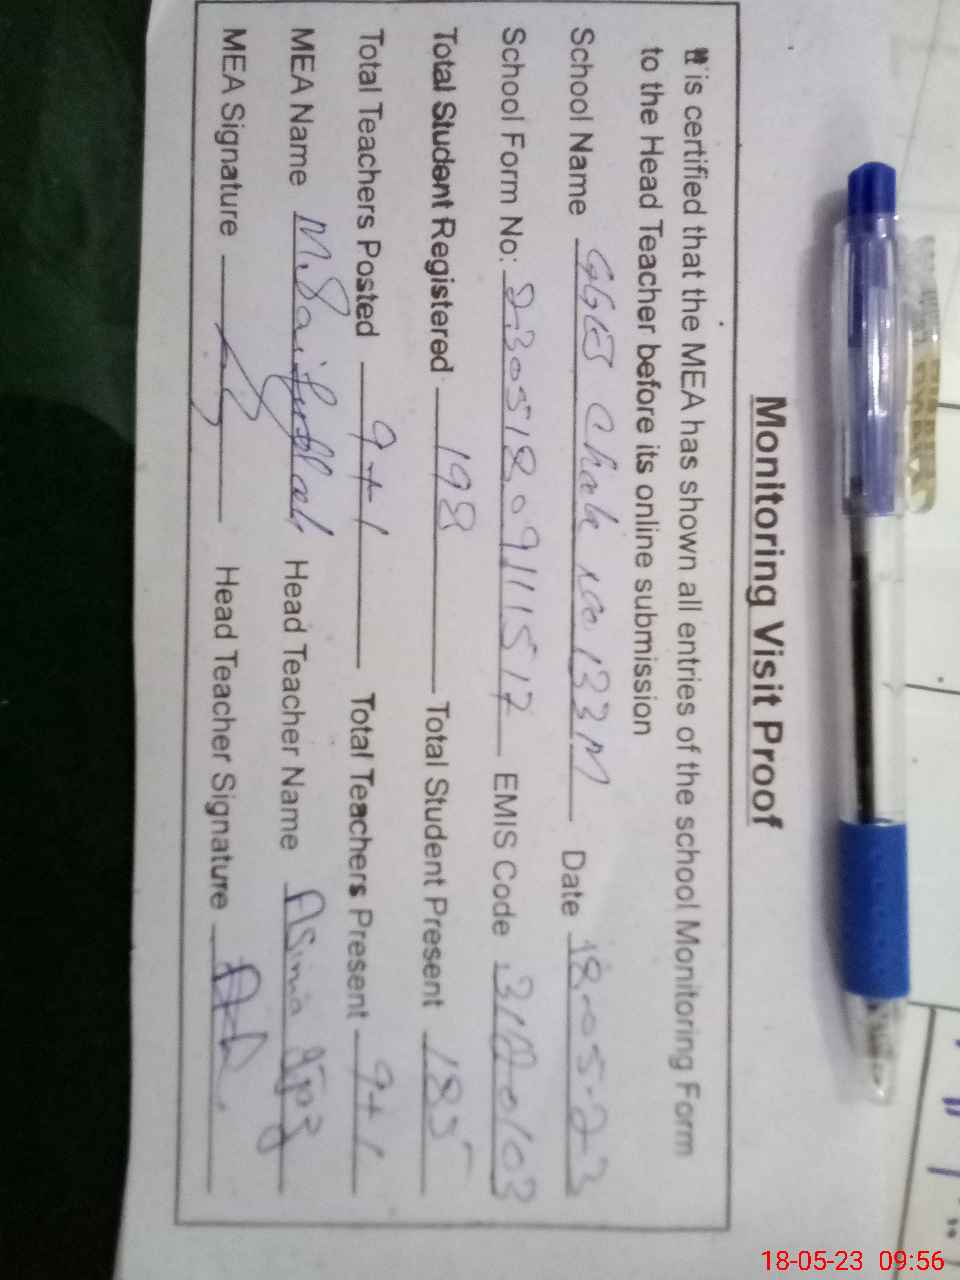 Monitoring Visit Proof
It is certified that the MEA has shown all entries of the school Monitoring Form
to the Head Teacher before its online submission
School Name GGES Chak No 133 M Date 18-05-23
School Form No: 2305180911517 EMIS Code 31120103
Total Student Registered 198 Total Student Present 185
Total Teachers Posted 9+1 Total Teachers Present 9+1
MEA Name M. Saifullah Head Teacher Name Asima
MEA Signature Head Teacher Signature
18-05-23 09:56